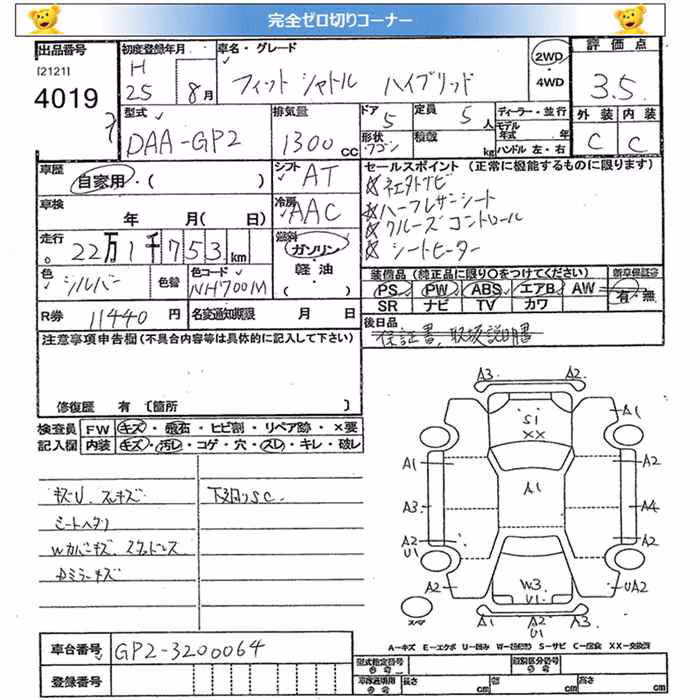 完全ゼロ切りコーナー
出品番号 初度登録年月 車名・グレード 評価点
[2121] H 25 8月 フィットシャトル ハイブリッド 2WD・4WD 3.5
4019
型式 排気量 ドア 定員 ディーラー・並行 外装 内装
DAA-GP2 1300cc 5 5人 モデル年式 年 C C
形状 ワゴン 積載 kg ハンドル 左・右
車歴 シフト セールスポイント(正常に機能するものに限ります)
自家用・( ) AT ☆社外ナビ
車検 冷房 ☆ハーフレザーシート
年 月( 日) AAC ☆クルーズコントロール
走行 燃料 ☆シートヒーター
22万1千753km ガソリン・軽油・( )
色 色替 色コード 装備品(純正品に限り○をつけてください) 新車保証書
シルバー NH700M PS PW ABS エアB AW 有・無
SR ナビ TV カワ
R券 11440円 名変通知期限 月 日 後日品
保証書、取扱説明書
注意事項申告欄(不具合内容等は具体的に記入して下さい)
修復歴 有〔箇所 〕
検査員 FW キズ・飛石・ヒビ割・リペア跡・×要
記入欄 内装 キズ・汚レ・コゲ・穴・スレ・キレ・破レ
キズU、スレキズ 下廻りSC.
シートヘタリ
Wカバーキズ
ドアミラーキズ
A3 A2
S1 A1
XX
A1 A1 A2
A3 A4
A2 U1 A2
A2 W3 U1 UA2
スペア A2 U1 A1 A3
A-キズ E-エクボ U-凹み W-補修跡 S-サビ C-腐食 XX-交換済
車台番号 GP2-3200064
登録番号
型式指定番号 類別区分番号
長さ cm 幅 cm 高さ cm